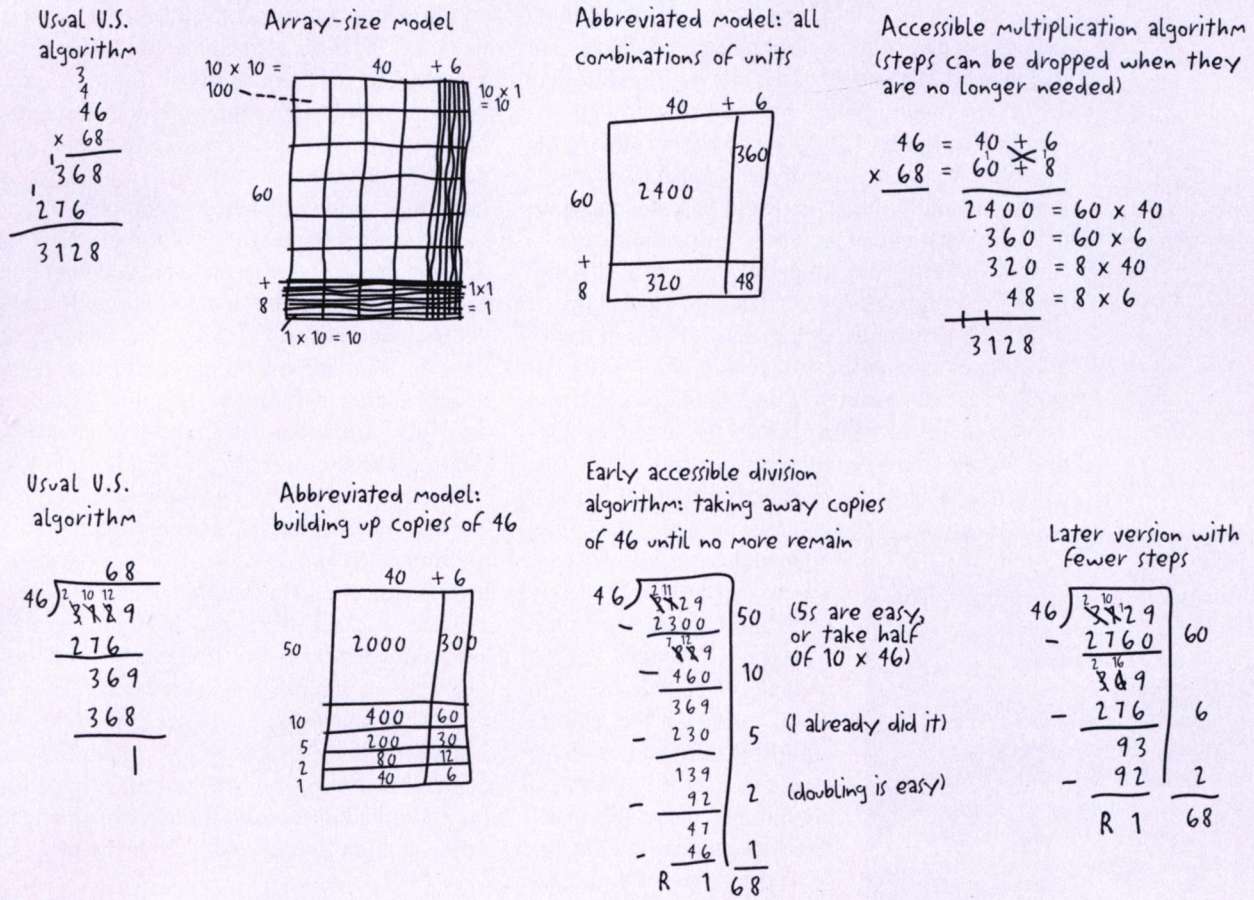 Usual U.S.
algorithm
3
4
46
x 68
1
368
1
276
3128
Array-size model
10 x 10 =
100
40 + 6
10 x 1
= 10
60
+
8
1x1
= 1
1 x 10 = 10
Abbreviated model: all
combinations of units
40 + 6
60
2400
360
+
8
320
48
Accessible multiplication algorithm
(steps can be dropped when they
are no longer needed)
46 = 40 + 6
x 68 = 60 + 8
1 1
2400 = 60 x 40
360 = 60 x 6
320 = 8 x 40
48 = 8 x 6
1 1
3128
Usual U.S.
algorithm
68
2 10 12
46)3129
276
369
368
1
Abbreviated model:
building up copies of 46
40 + 6
50 2000 300
10 400 60
5 200 30
2 80 12
1 40 6
Early accessible division
algorithm: taking away copies
of 46 until no more remain
2 11
46)3129
- 2300 50
(5s are easy,
or take half
of 10 x 46)
7 12
829
- 460 10
369
- 230 5
(I already did it)
139
- 92 2
(doubling is easy)
47
- 46 1
R 1 68
Later version with
fewer steps
2 10
46)3129
- 2760 60
2 16
369
- 276 6
93
- 92 2
R 1 68